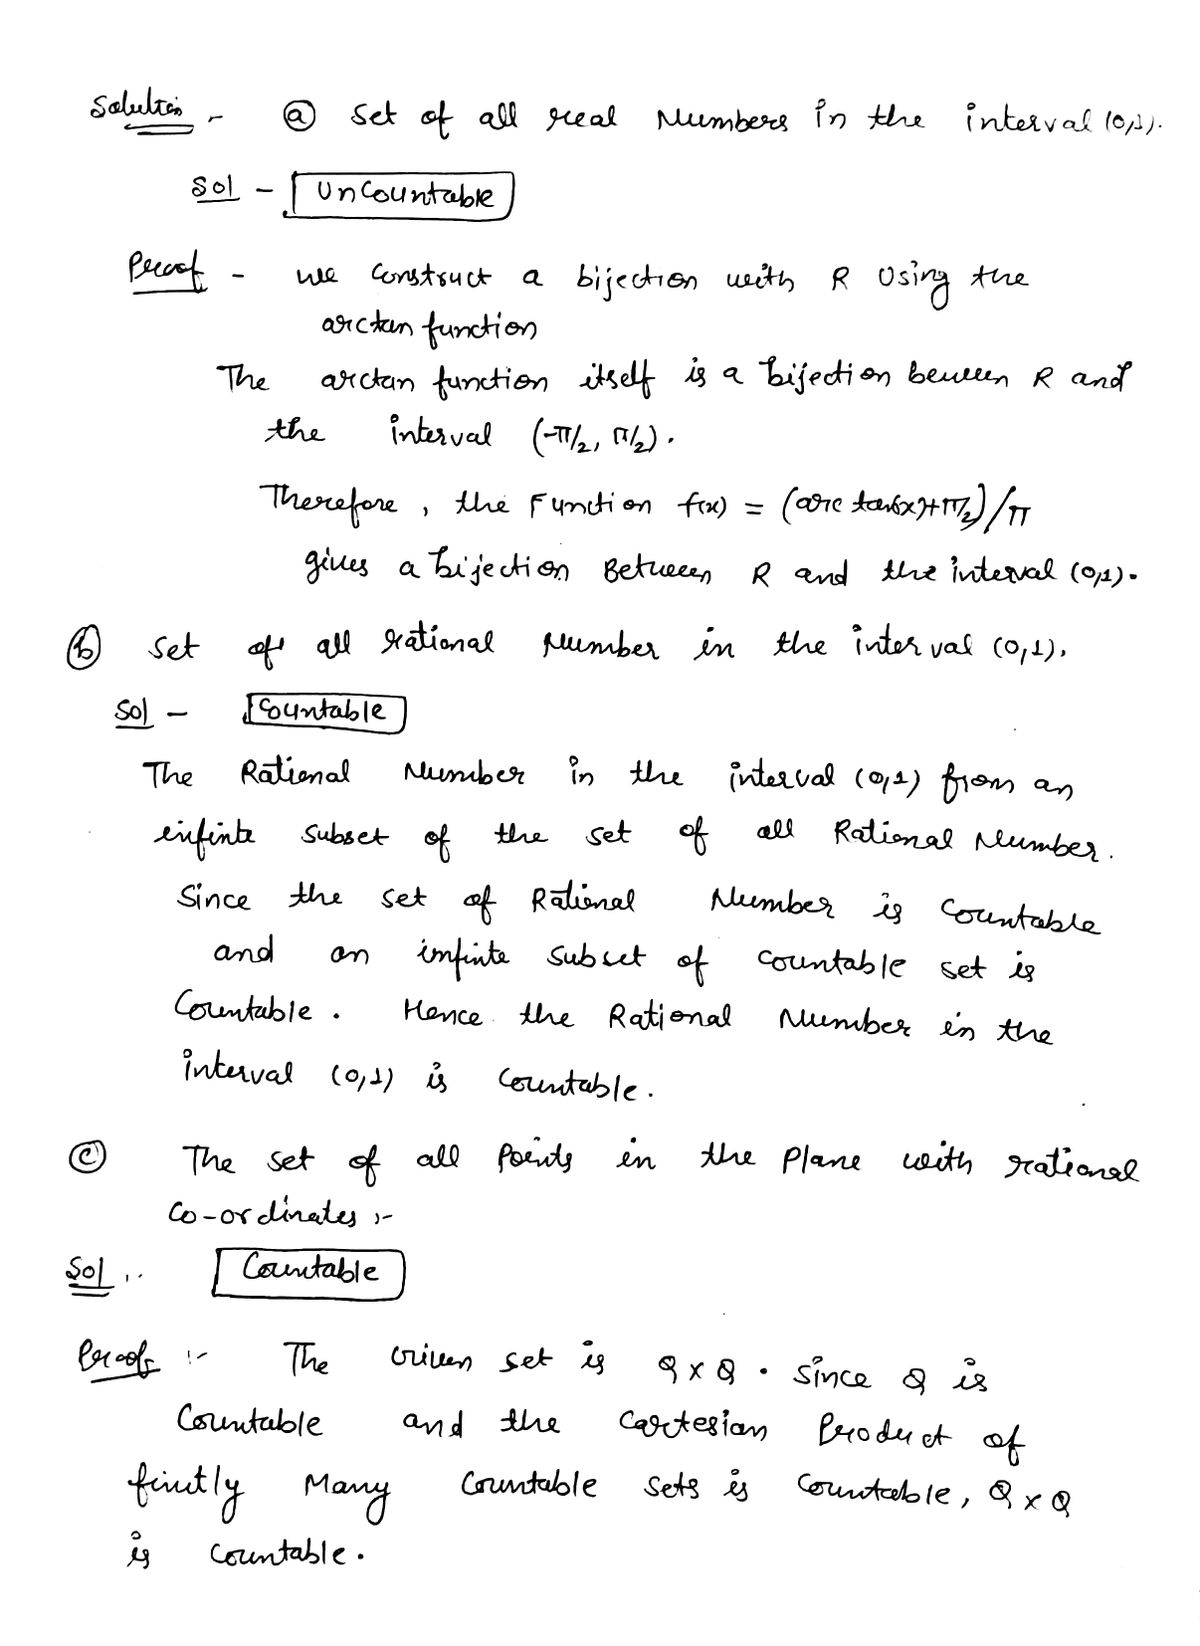 Solution - (a) Set of all real Numbers in the interval (0,1).
Sol - Uncountable
Proof - we Construct a bijection with R Using the
arctan function
The arctan function itself is a bijection between R and
the interval (-π/2, π/2).
Therefore, the Function f(x) = (arc tan(x)+π/2)/π
gives a bijection Between R and the interval (0,1).
(b) Set of all rational Number in the interval (0,1).
Sol - Countable
The Rational Number in the interval (0,1) from an
infinte subset of the set of all Rational Number.
Since the set of Rational Number is Countable
and an infinte subset of countable set is
Countable. Hence the Rational Number in the
interval (0,1) is Countable.
(c) The set of all Points in the Plane with rational
Co-ordinates :-
Sol :- Countable
Proof :- The Given set is Q x Q. Since Q is
Countable and the Cartesian Product of
finitly Many Countable sets is Countable, Q x Q
is Countable.